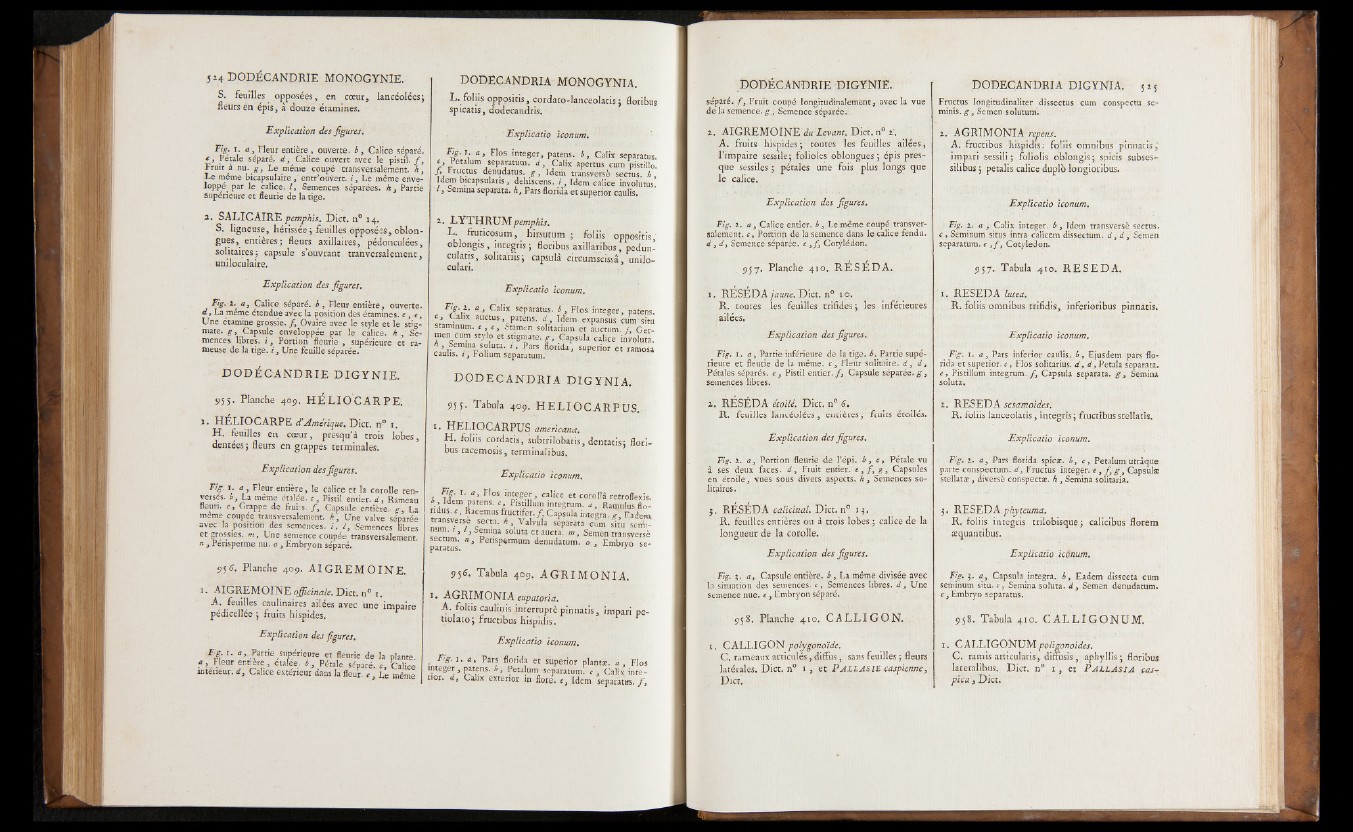 524 DODÉCANDRIE MONOGYNIE.
S. feuilles opposées, en cœur, lancéolées;
fleurs en épis, à douze étamines.
Explication des figures.
Fig. 1. a, Fleur entière, ouverte. b, Calice séparé.
c, Pétale séparé. d, Calice ouvert avec le pistil. f,
Fruit à nu. g, Le même coupé transversalement. h,
Le même bicapsulaire, entr'ouvert. i, Le même enve-
loppé par le calice. l, Semences séparées. k, Partie
supérieure et fleurie de la tige.
2. SALICAIRE pemphis. Dict. n° 14.
S. ligneuse, hérissée; feuilles opposées, oblon-
gues, entières; fleurs axillaires, pédonculées,
solitaires; capsule s'ouvrant tranversalement,
uniloculaire.
Explication des figures.
Fig. 2. a, Calice séparé. b, Fleur entière, ouverte.
d, La même étendue avec la position des étamines. e, e,
Une étamine grossie. f, Ovaire avec le style et le stig-
mate. g, Capsule enveloppée par le calice. h, Se-
mences libres. i, Portion fleurie, supérieure et ra-
meuse de la tige. i, Une feuille séparée.
DODÉCANDRIE DIGYNIE.
955. Planche 409. HÉLIOCARPE.
1. HÉLIOCARPE d'Amérique. Dict. n° 1.
H. feuilles en cœur, presqu'à trois lobes,
dentées; fleurs en grappes terminales.
Explication des figures.
Fig. 1. a, Fleur entière, le calice et la corolle ren-
versés. b, La même étalée. c, Pistil entier. d, Rameau
fleuri. e, Grappe de fruits. f, Capsule entière. g, La
même coupée transversalement. h, Une valve séparée
avec la position des semences. i, l, Semences libres
et grossies. m, Une semence coupée transversalement.
n, Périsperme nu. o, Embryon séparé.
956. Planche 409. AIGREMOINE.
1. AIGREMOINE officinale. Dict. n° 1.
A. feuilles caulinaires ailées avec une impaire
pédicellée; fruits hispides.
Explication des figures.
Fig. 1. a, Partie supérieure et fleurie de la plante.
a, Fleur entière, étalée. b, Pétale séparé. c, Calice
intérieur. d, Calice extérieur dans la fleur. e, Le même
DODECANDRIA MONOGYNIA.
L. foliis oppositis, cordato-lanceolatis; floribus
spicatis, dodecandris.
Explicatio iconum.
Fig. 1. a, Flos integer, patens. b, Calix separatus.
c, Petalum separatum. d, Calix apertus cum pistillo.
f, Fructus denudatus. g, Idem transversè sectus. h,
Idem bicapsularis, dehiscens. i, Idem calice involutus.
l, Semina separata. k, Pars florida et superior caulis.
2. LYTHRUM pemphis.
L. fruticosum, hirsutum; foliis oppositis,
oblongis, integris; floribus axillaribus, pedun-
culatis, solitariis; capsulâ circumscissâ, unilo-
culari.
Explicatio iconum.
Fig. 2. a, Calix separatus. b, Flos integer, patens.
c, Calix auctus, patens. d, Idem expansus cum situ
staminum. e, e, Stamen solitarium et auctum. f, Ger-
men cum stylo et stigmate. g, Capsula calice involuta.
h, Semina soluta. i, Pars florida, superior et ramosa
caulis. i, Folium separatum.
DODECANDRIA DIGYNIA.
955. Tabula 409. HELIOCARPUS.
1. HELIOCARPUS americana.
H. foliis cordatis, subtrilobatis, dentatis; flori-
bus racemosis, terminalibus.
Explicatio iconum.
Fig. 1. a, Flos integer, calice et corollâ retroflexis.
b, Idem patens. c, Pistillum integrum. d, Ramulus flo-
ridus. e, Racemus fructifer. f, Capsula integra. g, Eadem
transversè secta. h, Valvula separata cum situ semi-
num. i, l, Semina soluta et aucta. m, Semen transversè
sectum. n, Perispermum denudatum. o, Embryo se-
paratus.
956. Tabula 409. AGRIMONIA.
1. AGRIMONIA eupatoria.
A. foliis caulinis interruptè pinnatis, impari pe-
tiolato; fructibus hispidis.
Explicatio iconum.
Fig. 1. a, Pars florida et superior plantæ. a, Flos
integer, patens. b, Petalum separatum. c, Calix inte-
rior. d, Calix exterior in flore. e, Idem separatus. f,
DODÉCANDRIE DIGYNIE.
séparé. f, Fruit coupé longitudinalement, avec la vue
de la semence. g, Semence séparée.
2. AIGREMOINE du Levant. Dict. n° 2.
A. fruits hispides; toutes les feuilles ailées,
l'impaire sessile; folioles oblongues; épis pres-
que sessiles; pétales une fois plus longs que
le calice.
Explication des figures.
Fig. 2. a, Calice entier. b, Le même coupé transver-
salement. c, Portion de la semence dans le calice fendu.
d, d, Semence séparée. e, f, Cotylédon.
957. Planche 410. RÉSÉDA.
1. RÉSÉDA jaune. Dict. n° 10.
R. toutes les feuilles trifides; les inférieures
ailées.
Explication des figures.
Fig. 1. a, Partie inférieure de la tige. b. Partie supé-
rieure et fleurie de la même. c, Fleur solitaire. d, d,
Pétales séparés. e, Pistil entier. f, Capsule séparée. g,
semences libres.
2. RÉSÉDA étoilé. Dict. n° 6.
R. feuilles lancéolées, entières; fruits étoilés.
Explication des figures.
Fig. 2. a, Portion fleurie de l'épi. b, c, Pétale vu
à ses deux faces. d, Fruit entier. e, f, g, Capsules
en étoile, vues sous divers aspects. h, Semences so-
litaires.
3. RÉSÉDA calicinal. Dict. n° 13.
R. feuilles entières ou à trois lobes; calice de la
longueur de la corolle.
Explication des figures.
Fig. 3. a, Capsule entière. b, La même divisée avec
la situation des semences. c, Semences libres. d, Une
semence nue. e, Embryon séparé.
958. Planche 410. CALLIGON.
1. CALLIGON polygonoïde.
C. rameaux articulés, diffus, sans feuilles; fleurs
latérales. Dict. n° 1, et PALLASIE caspienne,
Dict.
DODECANDRIA DIGYNIA. 525
Fructus longitudinaliter dissectus cum conspectu se-
minis. g, Semen solutum.
2. AGRIMONIA repens.
A. fructibus hispidis; foliis omnibus pinnatis,
impari sessili; foliolis oblongis; spicis subses-
silibus; petalis calice duplò longioribus.
Explicatio iconum.
Fig. 2. a, Calix integer. b, Idem transversè sectus.
c, Seminum situs intra calicem dissectum. d, d, Semen
separatum. e, f, Cotyledon.
957. Tabula 410. RESEDA.
1. RESEDA lutea.
R. foliis omnibus trifidis, inferioribus pinnatis.
Explicatio iconum.
Fig. 1. a, Pars inferior caulis. b, Ejusdem pars flo-
rida et superior. c, Flos solitarius. d, d, Petala separata.
e, Pistillum integrum. f, Capsula separata. g, Semina
soluta.
2. RESEDA sesamoides.
R. foliis lanceolatis, integris; fructibus stellatis.
Explicatio iconum.
Fig. 2. a, Pars florida spicæ. b, c, Petalum utrâque
parte conspectum. d, Fructus integer. e, f, g, Capsulæ
stellatæ, diversè conspectæ. h, Semina solitaria.
3. RESEDA phyteuma.
R. foliis integris trilobisque; calicibus florem
æquantibus.
Explicatio iconum.
Fig. 3. a, Capsula integra. b, Eadem dissecta cum
seminum situ. c, Semina soluta. d, Semen denudatum.
e, Embryo separatus.
958. Tabula 410. CALLIGONUM.
1. CALLIGONUM poligonoides.
C. ramis articulatis, diffusis, aphyllis; floribus
lateralibus. Dict. n° 1, et PALLASIA cas-
pica, Dict.